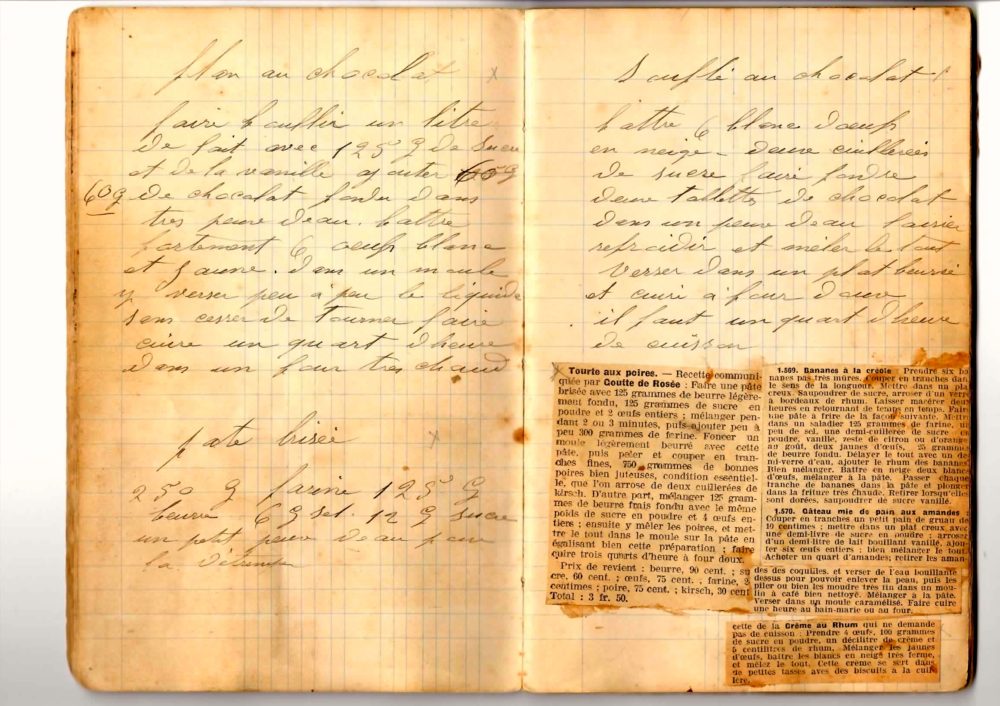 flan au chocolat x
faire bouillir un litre
de lait avec 125 g de sucre
et de la vanille ajouter
60 g de chocolat fondu dans
tres peux deau. battre
fortement 6 oeufs blanc
et jaune. dans un moule
y verser peu a peu le liquide
sans cesser de tourner faire
cuire un quart dheure
dans un four tres chaud
pate brisée x
250 g farine 125 g
beurre 6 g sel. 12 g sucre
un petit peux deau pour
la détremper
Souflé au chocolat
battre 6 blanc doeufs
en neige - deux cuillerées
de sucre faire fondre
deux tablettes de chocolat
dans un peux deau laisser
refroidir et meler le tout
verser dans un plat beurré
et cuire a four doux
il faut un quart dheure
de cuisson
Tourte aux poires. — Recette communi-
quée par Goutte de Rosée : Faire une pâte
brisée avec 125 grammes de beurre légère-
ment fondu, 125 grammes de sucre en
poudre et 2 œufs entiers ; mélanger pen-
dant 2 ou 3 minutes, puis ajouter peu à
peu 300 grammes de farine. Foncer un
moule légèrement beurré avec cette
pâte, puis peler et couper en tran-
ches fines, 750 grammes de bonnes
poires bien juteuses, condition essentiel-
le, que l'on arrose de deux cuillerées de
kirsch. D'autre part, mélanger 125 gram-
mes de beurre frais fondu avec le même
poids de sucre en poudre et 4 œufs en-
tiers ; ensuite y mêler les poires, et met-
tre le tout dans le moule sur la pâte en
égalisant bien cette préparation ; faire
cuire trois quarts d'heure à four doux.
Prix de revient : beurre, 90 cent. ; su
cre, 60 cent. ; œufs, 75 cent. ; farine, 2
centimes ; poire, 75 cent. ; kirsch, 30 cent
Total : 3 fr. 50.
1.569. Bananes à la créole : Prendre six ba
nanes pas très mûres. Couper en tranches dan
le sens de la longueur. Mettre dans un pla
creux. Saupoudrer de sucre, arroser d'un verr
à bordeaux de rhum. Laisser macérer deux
heures en retournant de temps en temps. Fair
une pâte à frire de la façon suivante. Mettr
dans un saladier 125 grammes de farine, un
peu de sel, une demi-cuillerée de sucre en
poudre, vanille, zeste de citron ou d'orange
au goût, deux jaunes d'œufs, 25 grammes
de beurre fondu. Délayer le tout avec un de-
mi-verre d'eau, ajouter le rhum des bananes.
Bien mélanger. Battre en neige deux blancs
d'œufs, mélanger à la pâte. Passer chaque
tranche de bananes dans la pâte et plonger
dans la friture très chaude. Retirer lorsqu'elles
sont dorées, saupoudrer de sucre vanillé.
1.570. Gâteau mie de pain aux amandes :
Couper en tranches un petit pain de gruau de
10 centimes ; mettre dans un plat creux avec
une demi-livre de sucre en poudre ; arroser
d'un demi-litre de lait bouillant vanillé, ajou-
ter six œufs entiers ; bien mélanger le tout.
Acheter un quart d'amandes; retirer les aman
des des coquilles, et verser de l'eau bouillante
dessus pour pouvoir enlever la peau, puis les
piler ou bien les moudre très fin dans un mou-
lin à café bien nettoyé. Mélanger à la pâte.
Verser dans un moule caramélisé. Faire cuire
une heure au bain-marie ou au four.
cette de la Crème au Rhum qui ne demande
pas de cuisson : Prendre 4 œufs, 100 grammes
de sucre en poudre, un décilitre de crème et
5 centilitres de rhum. Mélanger les jaunes
d'œufs, battre les blancs en neige très ferme,
et mêlez le tout. Cette crème se sert dans
de petites tasses avec des biscuits à la cuil
lère.